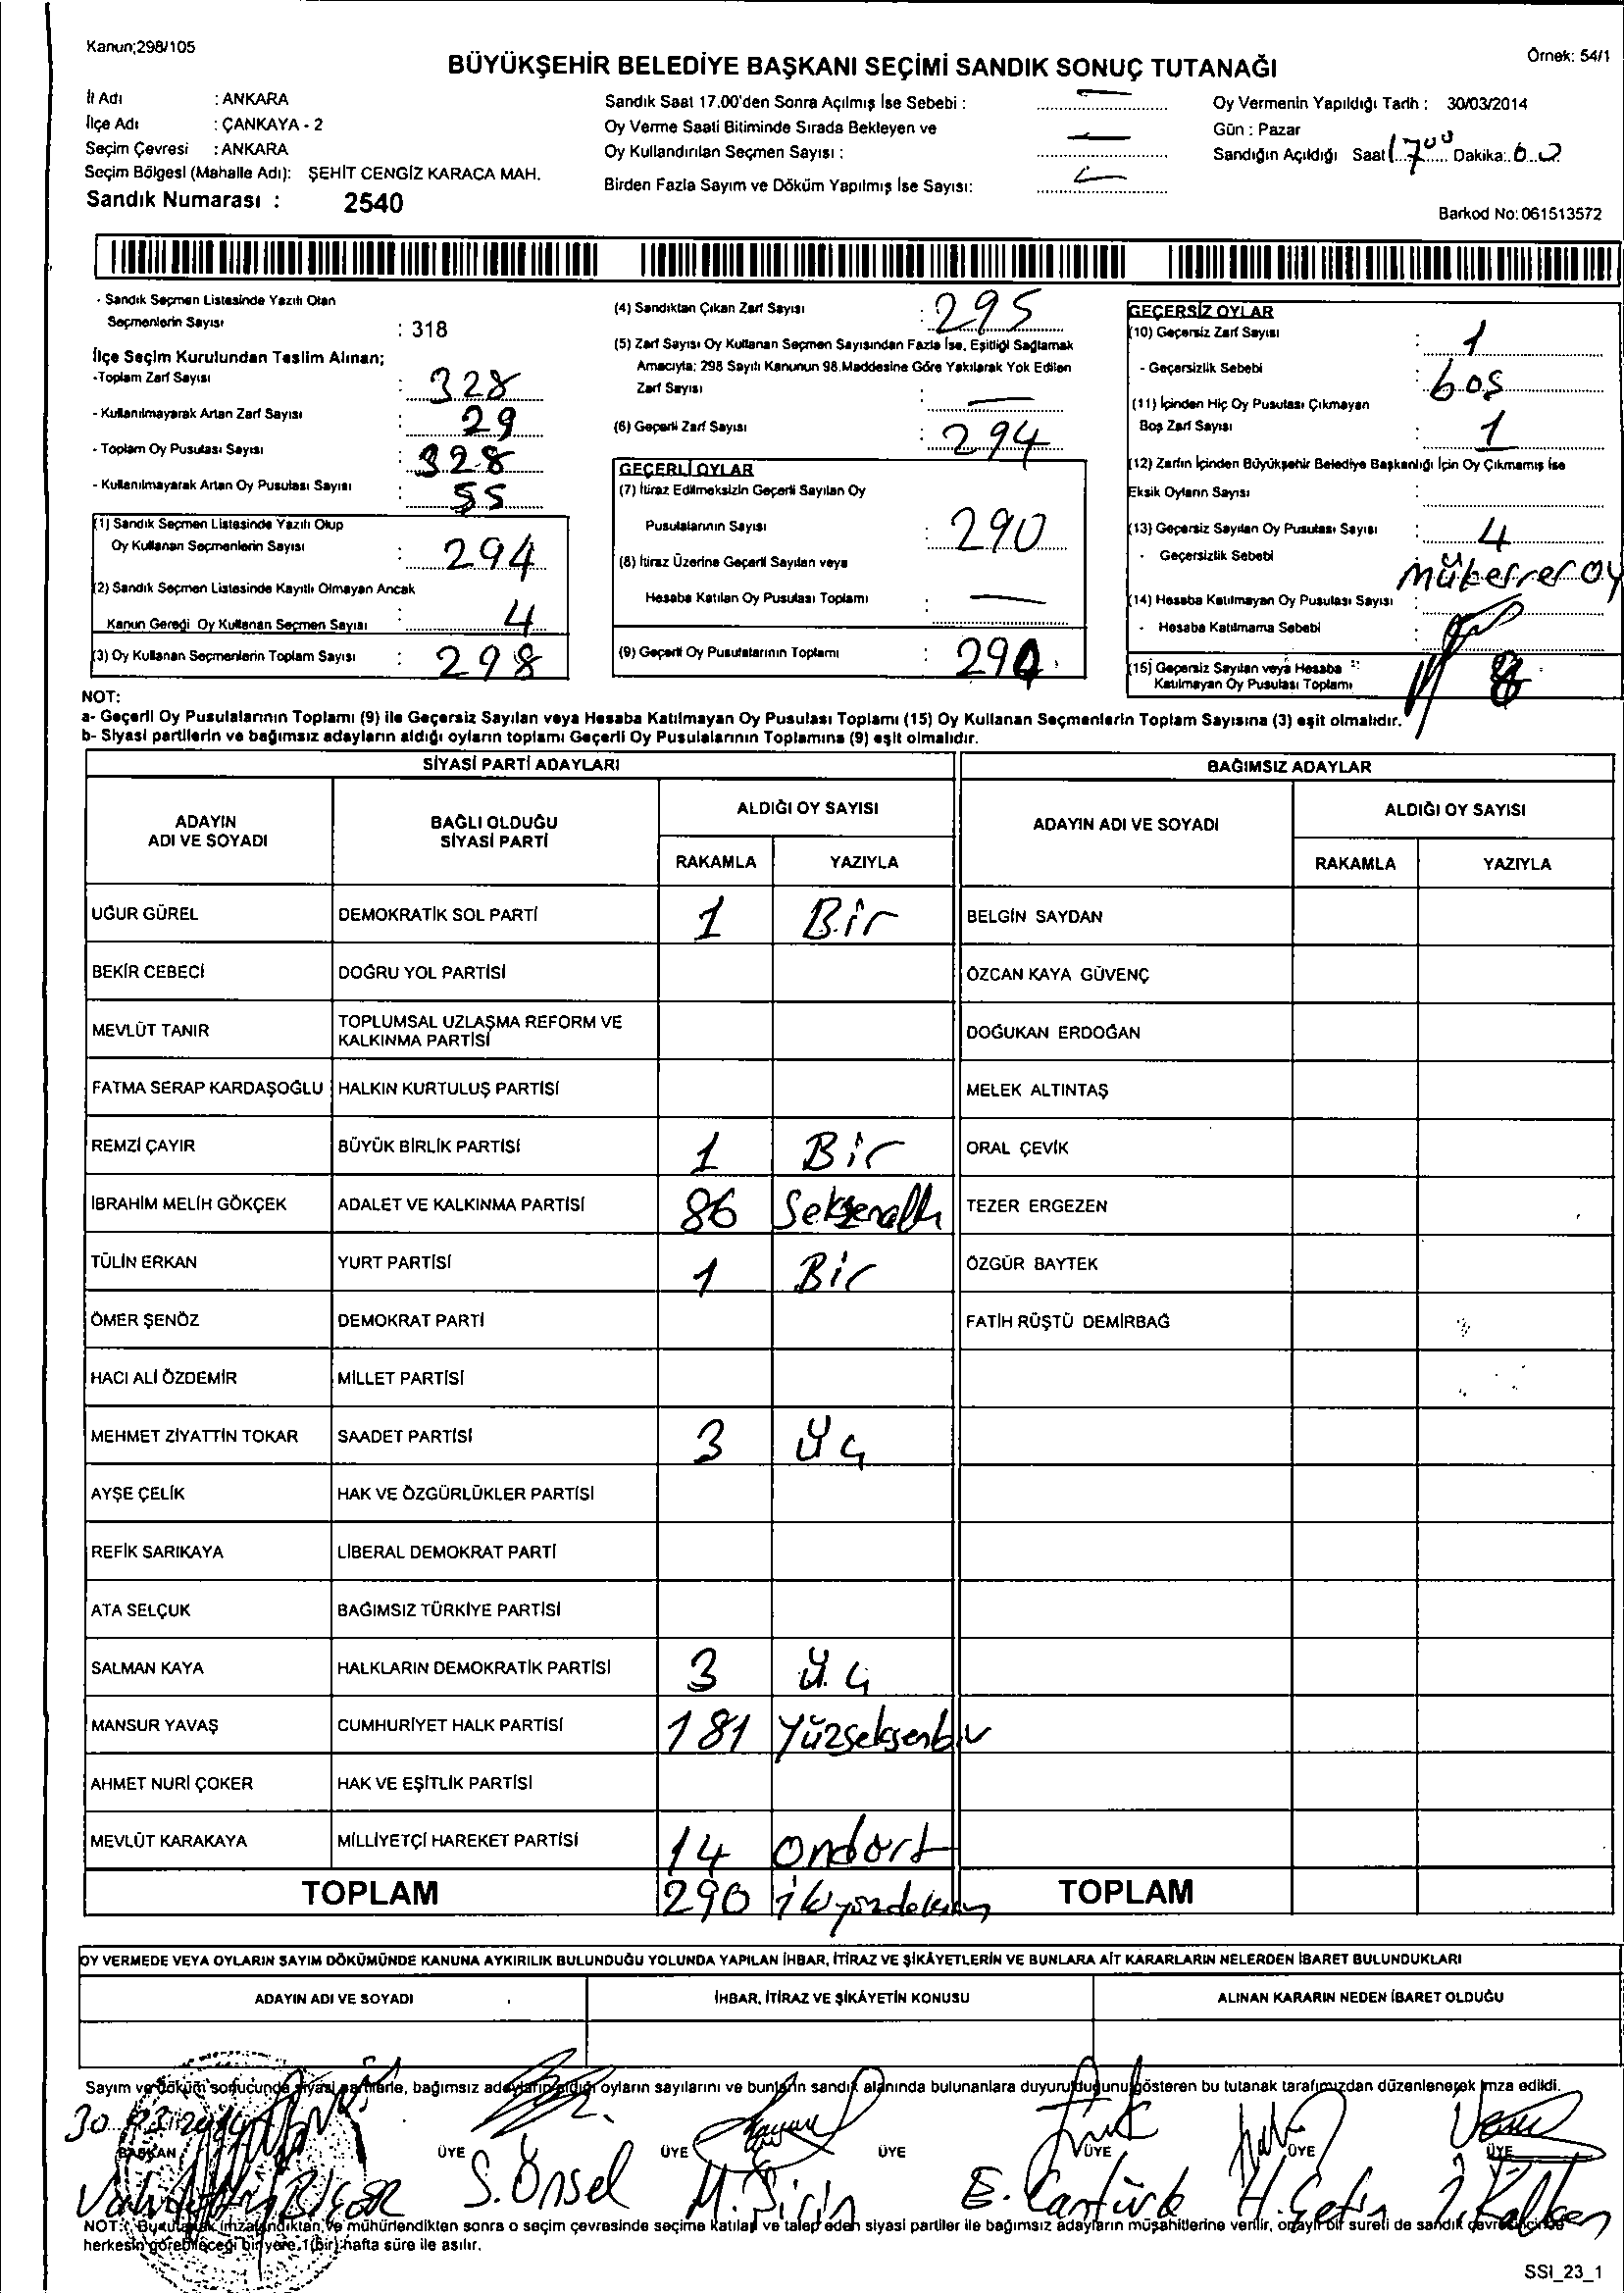 Kanun;298/105
Örnek: 54/1
BÜYÜKŞEHİR BELEDİYE BAŞKANI SEÇİMİ SANDIK SONUÇ TUTANAĞI
İl Adı : ANKARA
İlçe Adı : ÇANKAYA - 2
Seçim Çevresi : ANKARA
Seçim Bölgesi (Mahalle Adı): ŞEHİT CENGİZ KARACA MAH.
Sandık Numarası : 2540
Sandık Saat 17.00'den Sonra Açılmış İse Sebebi :
Oy Verme Saati Bitiminde Sırada Bekleyen ve
Oy Kullandırılan Seçmen Sayısı :
Birden Fazla Sayım ve Döküm Yapılmış İse Sayısı:
Oy Vermenin Yapıldığı Tarih : 30/03/2014
Gün : Pazar
Sandığın Açıldığı Saat 17 00 Dakika:
Barkod No: 061513572
- Sandık Seçmen Listesinde Yazılı Olan
Seçmenlerin Sayısı : 318
İlçe Seçim Kurulundan Teslim Alınan;
-Toplam Zarf Sayısı : 328
- Kullanılmayarak Artan Zarf Sayısı : 29
- Toplam Oy Pusulası Sayısı : 328
- Kullanılmayarak Artan Oy Pusulası Sayısı : 55
(1) Sandık Seçmen Listesinde Yazılı Olup
Oy Kullanan Seçmenlerin Sayısı : 294
(2) Sandık Seçmen Listesinde Kayıtlı Olmayan Ancak
Kanun Gereği Oy Kullanan Seçmen Sayısı : 4
(3) Oy Kullanan Seçmenlerin Toplam Sayısı : 298
(4) Sandıktan Çıkan Zarf Sayısı : 295
(5) Zarf Sayısı Oy Kullanan Seçmen Sayısından Fazla İse, Eşitliği Sağlamak
Amacıyla; 298 Sayılı Kanunun 98.Maddesine Göre Yakılarak Yok Edilen
Zarf Sayısı :
(6) Geçerli Zarf Sayısı : 294
GEÇERLİ OYLAR
(7) İtiraz Edilmeksizin Geçerli Sayılan Oy
Pusulalarının Sayısı : 290
(8) İtiraz Üzerine Geçerli Sayılan veya
Hesaba Katılan Oy Pusulası Toplamı :
(9) Geçerli Oy Pusulalarının Toplamı : 290
GEÇERSİZ OYLAR
(10) Geçersiz Zarf Sayısı : 1
- Geçersizlik Sebebi : boş
(11) İçinden Hiç Oy Pusulası Çıkmayan
Boş Zarf Sayısı : 1
(12) Zarfın İçinden Büyükşehir Belediye Başkanlığı İçin Oy Çıkmamış İse
Eksik Oyların Sayısı :
(13) Geçersiz Sayılan Oy Pusulası Sayısı : 4
- Geçersizlik Sebebi mükerrer oy
(14) Hesaba Katılmayan Oy Pusulası Sayısı :
- Hesaba Katılmama Sebebi
(15) Geçersiz Sayılan veya Hesaba
Katılmayan Oy Pusulası Toplamı
NOT:
a- Geçerli Oy Pusulalarının Toplamı (9) ile Geçersiz Sayılan veya Hesaba Katılmayan Oy Pusulası Toplamı (15) Oy Kullanan Seçmenlerin Toplam Sayısına (3) eşit olmalıdır.
b- Siyasi partilerin ve bağımsız adayların aldığı oyların toplamı Geçerli Oy Pusulalarının Toplamına (9) eşit olmalıdır.
SİYASİ PARTİ ADAYLARI BAĞIMSIZ ADAYLAR
ADAYIN ADI VE SOYADI
BAĞLI OLDUĞU SİYASİ PARTİ
ALDIĞI OY SAYISI
RAKAMLA YAZIYLA
ADAYIN ADI VE SOYADI
ALDIĞI OY SAYISI
RAKAMLA YAZIYLA
UĞUR GÜREL DEMOKRATİK SOL PARTİ 1 Bir BELGİN SAYDAN
BEKİR CEBECİ DOĞRU YOL PARTİSİ ÖZCAN KAYA GÜVENÇ
MEVLÜT TANIR TOPLUMSAL UZLAŞMA REFORM VE KALKINMA PARTİSİ DOĞUKAN ERDOĞAN
FATMA SERAP KARDAŞOĞLU HALKIN KURTULUŞ PARTİSİ MELEK ALTINTAŞ
REMZİ ÇAYIR BÜYÜK BİRLİK PARTİSİ 1 Bir ORAL ÇEVİK
İBRAHİM MELİH GÖKÇEK ADALET VE KALKINMA PARTİSİ 86 Seksenaltı TEZER ERGEZEN
TÜLİN ERKAN YURT PARTİSİ 1 Bir ÖZGÜR BAYTEK
ÖMER ŞENÖZ DEMOKRAT PARTİ FATİH RÜŞTÜ DEMİRBAĞ
HACI ALİ ÖZDEMİR MİLLET PARTİSİ
MEHMET ZİYATTİN TOKAR SAADET PARTİSİ 3 üç
AYŞE ÇELİK HAK VE ÖZGÜRLÜKLER PARTİSİ
REFİK SARIKAYA LİBERAL DEMOKRAT PARTİ
ATA SELÇUK BAĞIMSIZ TÜRKİYE PARTİSİ
SALMAN KAYA HALKLARIN DEMOKRATİK PARTİSİ 3 ü.ç
MANSUR YAVAŞ CUMHURİYET HALK PARTİSİ 181 Yüzseksenbir
AHMET NURİ ÇOKER HAK VE EŞİTLİK PARTİSİ
MEVLÜT KARAKAYA MİLLİYETÇİ HAREKET PARTİSİ 14 ondört
TOPLAM 290 TOPLAM
OY VERMEDE VEYA OYLARIN SAYIM DÖKÜMÜNDE KANUNA AYKIRILIK BULUNDUĞU YOLUNDA YAPILAN İHBAR, İTİRAZ VE ŞİKÂYETLERİN VE BUNLARA AİT KARARLARIN NELERDEN İBARET BULUNDUKLARI
ADAYIN ADI VE SOYADI İHBAR, İTİRAZ VE ŞİKÂYETİN KONUSU ALINAN KARARIN NEDEN İBARET OLDUĞU
Sayım ve döküm sonucunda siyasi partilerle, bağımsız adayların aldığı oyların sayılarını ve bunların sandık alanında bulunanlara duyurulduğunu gösteren bu tutanak tarafımızdan düzenlenerek imza edildi.
30.03.2014
BAŞKAN ÜYE ÜYE ÜYE ÜYE ÜYE ÜYE
S. Önsel M. Şirin E. Cantürk H. Çetin
NOT: Bu tutanak imzalandıktan ve mühürlendikten sonra o seçim çevresinde seçime katılan ve talep eden siyasi partiler ile bağımsız adayların müşahitlerine verilir, onaylı bir sureti de sandık çevresi içinde
herkesin görebileceği bir yere 1(bir) hafta süre ile asılır.
SSI_23_1